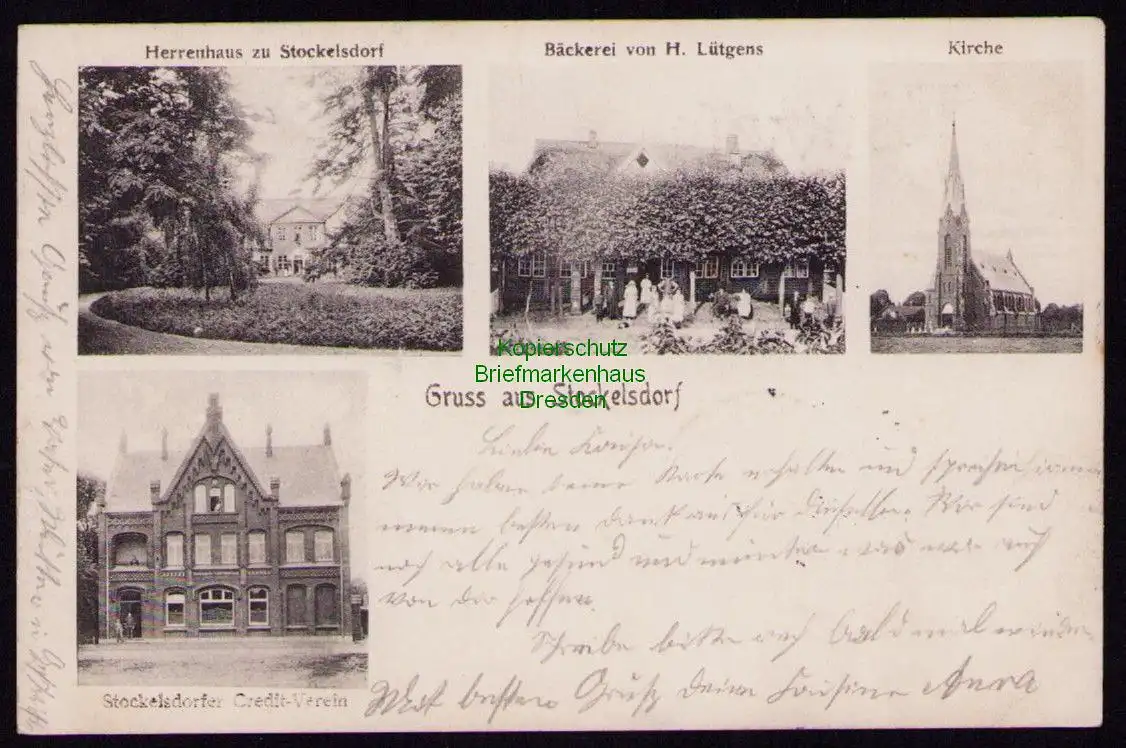 Herrenhaus zu Stockelsdorf
Bäckerei von H. Lütgens
Kirche
Kopierschutz
Briefmarkenhaus
Dresden
Gruss aus Stockelsdorf
Wir haben deine Karte erhalten und sprechen
meinen besten Dank aus für dieselbe. Wir sind
noch alle gesund und munter was wir auch
von dir hoffen.
Schreibe bitte auch bald mal wieder
Mit besten Gruß deine Cousine Anna
Stockelsdorfer Credit-Verein